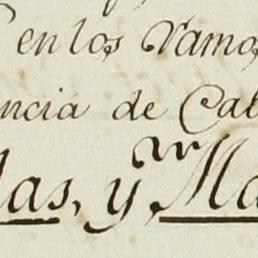 en los Ramo
ncia de Cab
las, y Ma